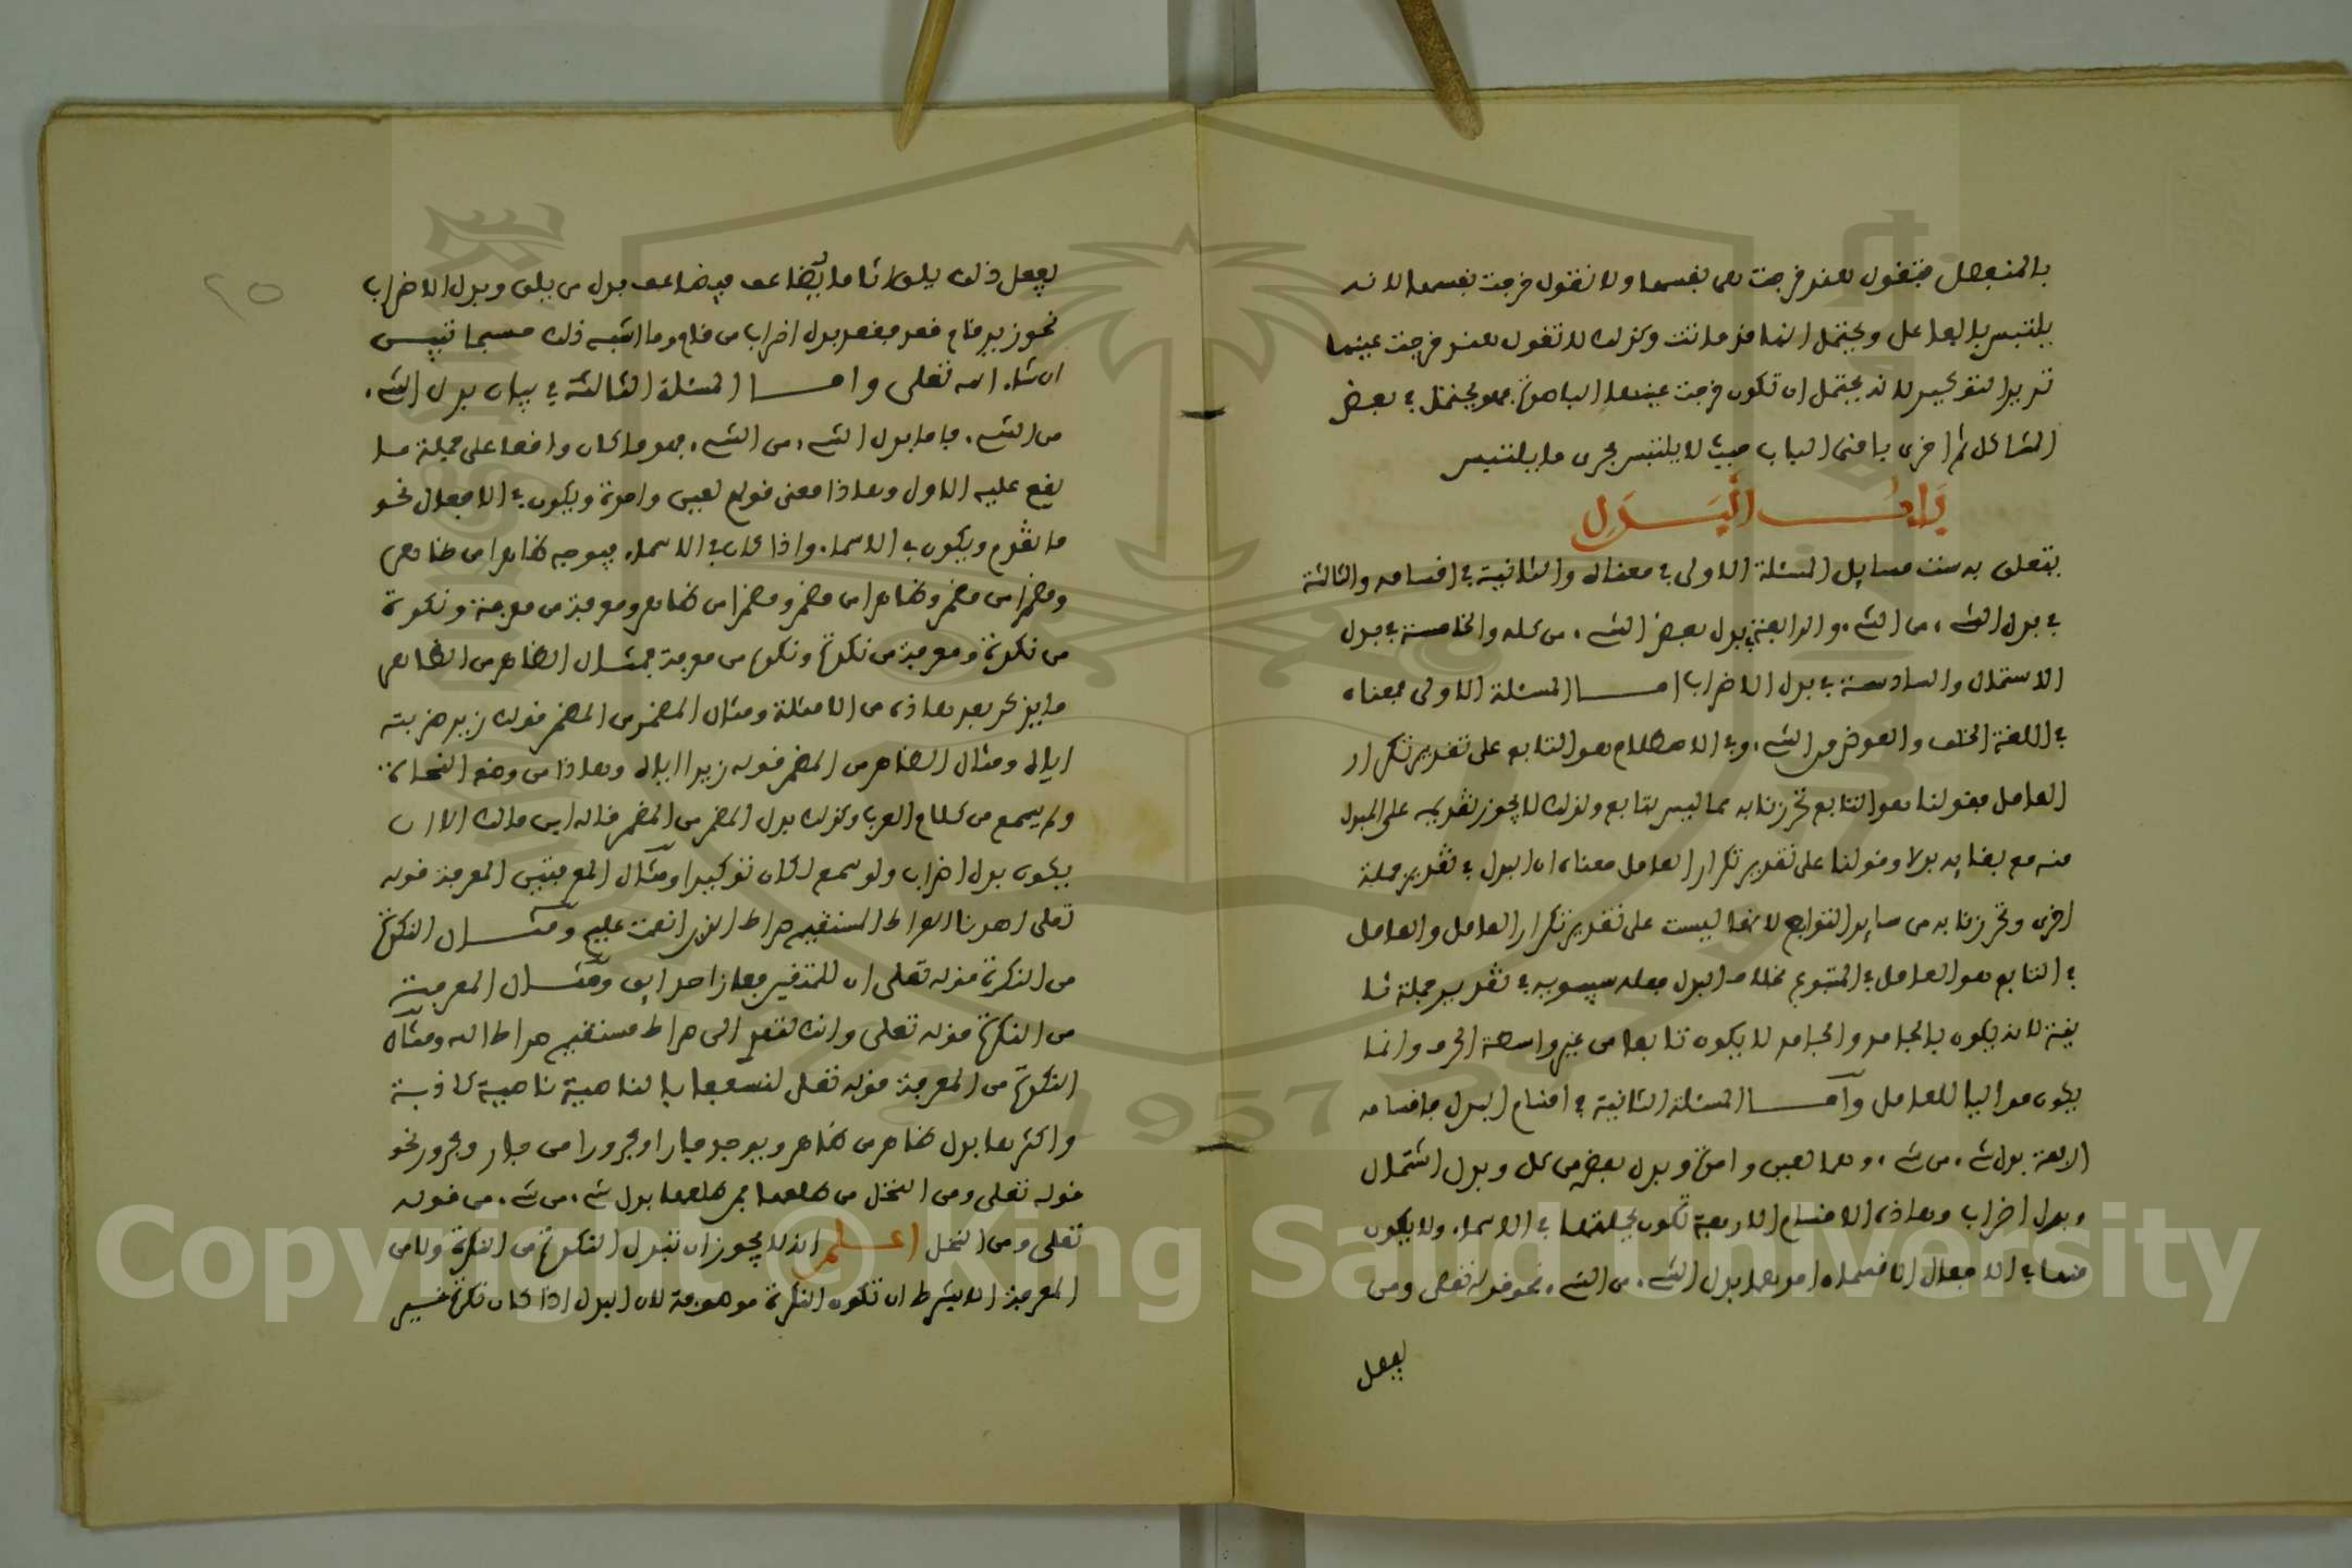 بالمنفصل فتقول هند خرجت هي نفسها ولا تقول خرجت نفسها لانه
يلتبس بالفاعل ويحتمل انها قد ماتت وكذلك لا تقول هند خرجت عينها
تريد التوكيد لانه يحتمل ان تكون خرجت عينها الباصرة فهو يحتمل في بعض
المشاكل ثم اجرى باقي الباب حيث لا يلتبس مجرى ما يلتبس
باب البدل
يتعلق به ست مسايل المسئلة الاولى في معناه والثانية في اقسامه والثالثة
في بدل الشيء من الشيء والرابعة في بدل بعض الشيء من كله والخامسة في بدل
الاشتمال والسادسة في بدل الاضراب اما المسئلة الاولى فمعناه
في اللغة الخلف والعوض من الشيء وفي الاصطلاح هو التابع على تقدير تكرار
العامل فقولنا هو التابع تحرزنا به مما ليس بتابع ولذلك لا يجوز تقديمه على المبدل
منه مع بقايه بدلا وقولنا على تقدير تكرار العامل معناه ان البدل في تقدير جملة
اخرى وتحرزنا به من ساير التوابع لانها ليست على تقدير تكرار العامل والعامل
في التابع هو العامل في المتبوع بخلاف البدل جعله سيبويه في تقدير جملة ثا
نية لانه يكون بالجامد والجامد لا يكون تابعا من غير واسطة الحرف وانما
يكون مواليا للعامل واما المسئلة الثانية في اقسام البدل فاقسامه
اربعة بدل شيء من شيء وهما لعين واحدة وبدل بعض من كل وبدل اشتمال
وبدل اضراب وهاذه الاقسام الاربعة تكون بجملتها في الاسماء ولا يكون
منها في الافعال الا قسمان احدهما بدل الشيء من الشيء نحو قوله تعلى ومن
يفعل
٢٥
يفعل ذلك يلق اثاما يضاعف فيضاعف بدل من يلق وبدل الاضراب
نحو زيد قام قعد فقعد بدل اضراب من قام وما اشبه ذلك حسبما تبين
ان شاء الله تعلى واما المسئلة الثالثة في بيان بدل الشيء
من الشيء فاما بدل الشيء من الشيء فهو ما كان واقعا على جملة ما
يقع عليه الاول وهاذا معنى قولهم لعين واحدة ويكون في الافعال نحو
ما تقدم ويكون في الاسماء واذا كان في الاسماء فيوجد ظاهرا من ظاهر
ومضمرا من مضمر وظاهرا من مضمر ومضمرا من ظاهر ومعرفة من معرفة ونكرة
من نكرة ومعرفة من نكرة ونكرة من معرفة فمثال الظاهر من الظاهر
ما يذكر بعد هاذه من الامثلة ومثال المضمر من المضمر قولك زيد ضربته
اياه ومثال الظاهر من المضمر قوله زيدا اياه وهاذا من وضع النحاة
ولم يسمع من كلام العرب وكذلك بدل المضمر من المضمر قاله ابن مالك الا ان
يكون بدل اضراب ولو سمع لكان توكيدا ومثال المعرفة من المعرفة قوله
تعلى اهدنا الصراط المستقيم صراط الذين انعمت عليهم ومثال النكرة
من النكرة قوله تعلى ان للمتقين مفازا حدايق ومثال المعرفة
من النكرة قوله تعلى وانك لتهدي الى صراط مستقيم صراط الله ومثال
النكرة من المعرفة قوله تعلى لنسفعا بالناصية ناصية كاذبة
واكثرها بدل ظاهر من ظاهر ويوجد جارا ومجرورا من جار ومجرور نحو
قوله تعلى ومن النخل من طلعها فمن طلعها بدل شيء من شيء من قوله
تعلى ومن النخل اعلم انه لا يجوز ان تبدل النكرة من النكرة ولا من
المعرفة الا بشرط ان تكون النكرة موصوفة لان البدل اذا كان نكرة غير